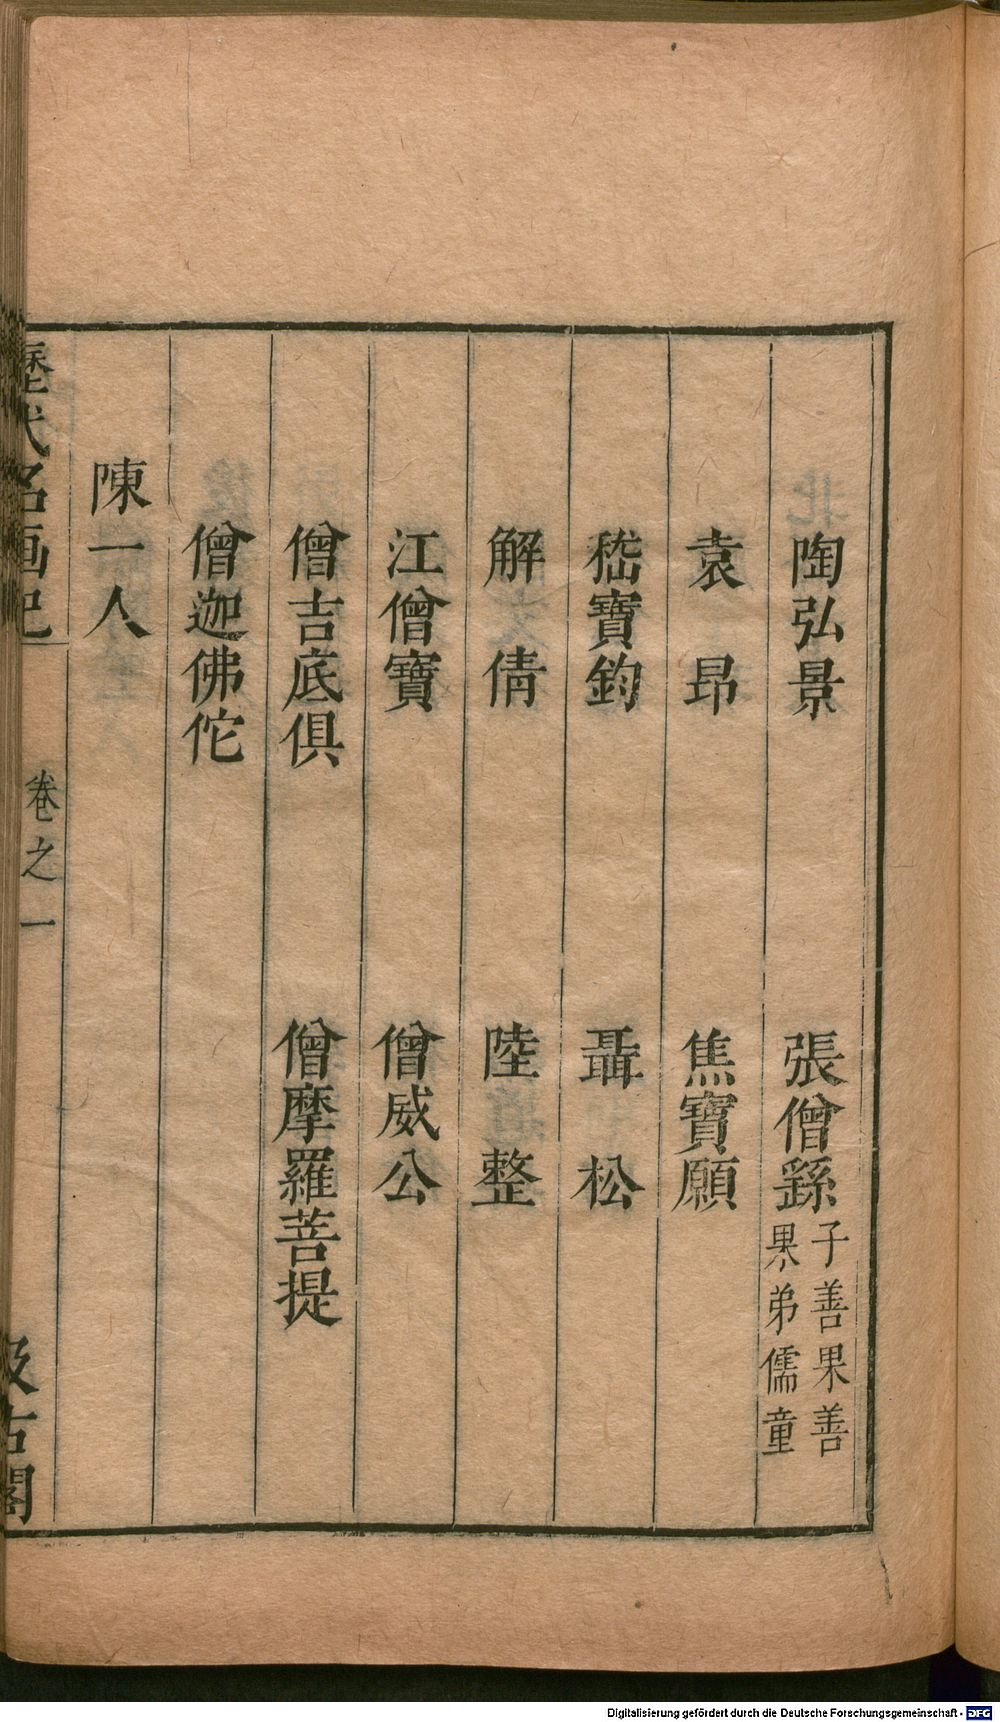 陶弘景　張僧繇子善果善
果弟儒童
袁昂　焦寶願
嵇寶鈞　聶松
解倩　陸整
江僧寶　僧威公
僧吉底俱　僧摩羅菩提
僧迦佛佗
陳一人
歷代名画記　卷之一　汲古閣
Digitalisierung gefördert durch die Deutsche Forschungsgemeinschaft - DFG